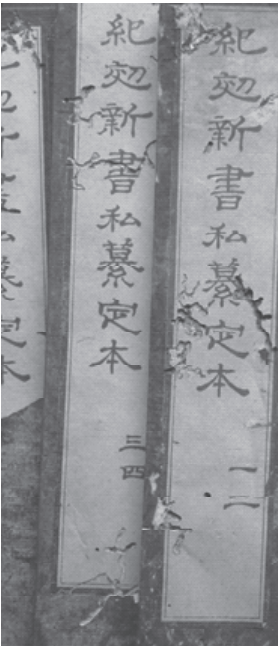 紀効新書私纂定本
一二
紀効新書私纂定本
三四